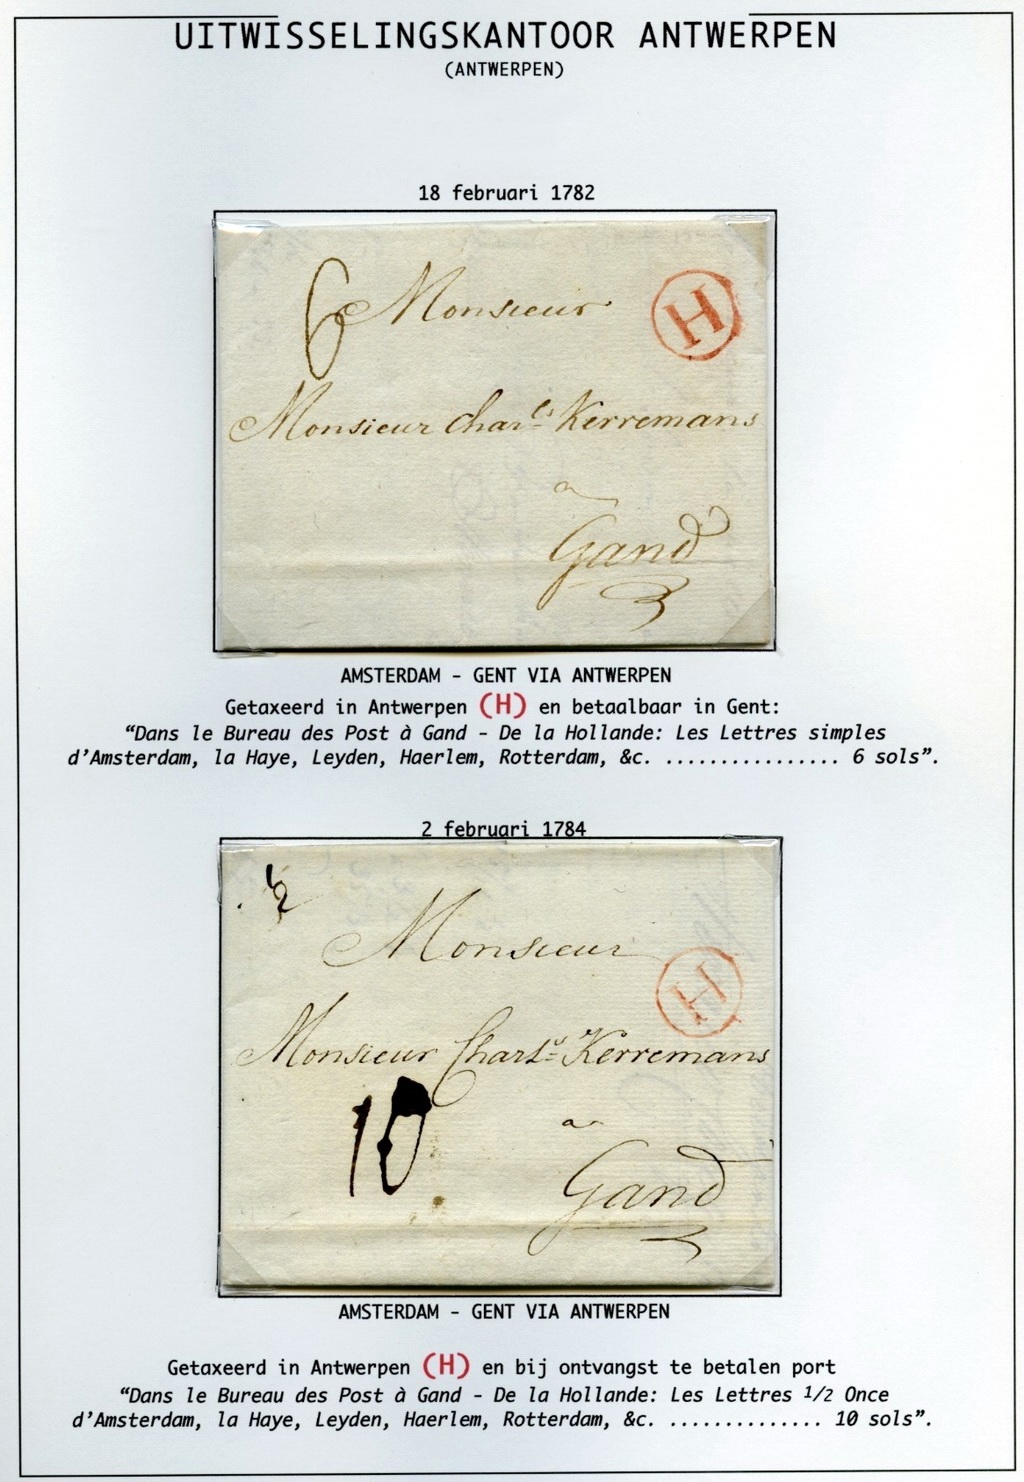 UITWISSELINGSKANTOOR ANTWERPEN
(ANTWERPEN)
18 februari 1782
6 Monsieur
H
Monsieur Charles Kerremans
a
Gand
AMSTERDAM - GENT VIA ANTWERPEN
Getaxeerd in Antwerpen (H) en betaalbaar in Gent:
“Dans le Bureau des Post à Gand - De la Hollande: Les Lettres simples
d’Amsterdam, la Haye, Leyden, Haerlem, Rotterdam, &c. ................ 6 sols”.
2 februari 1784
1/2
Monsieur
H
Monsieur Charls Kerremans
10
a
Gand
AMSTERDAM - GENT VIA ANTWERPEN
Getaxeerd in Antwerpen (H) en bij ontvangst te betalen port
“Dans le Bureau des Post à Gand - De la Hollande: Les Lettres 1/2 Once
d’Amsterdam, la Haye, Leyden, Haerlem, Rotterdam, &c. .............. 10 sols”.